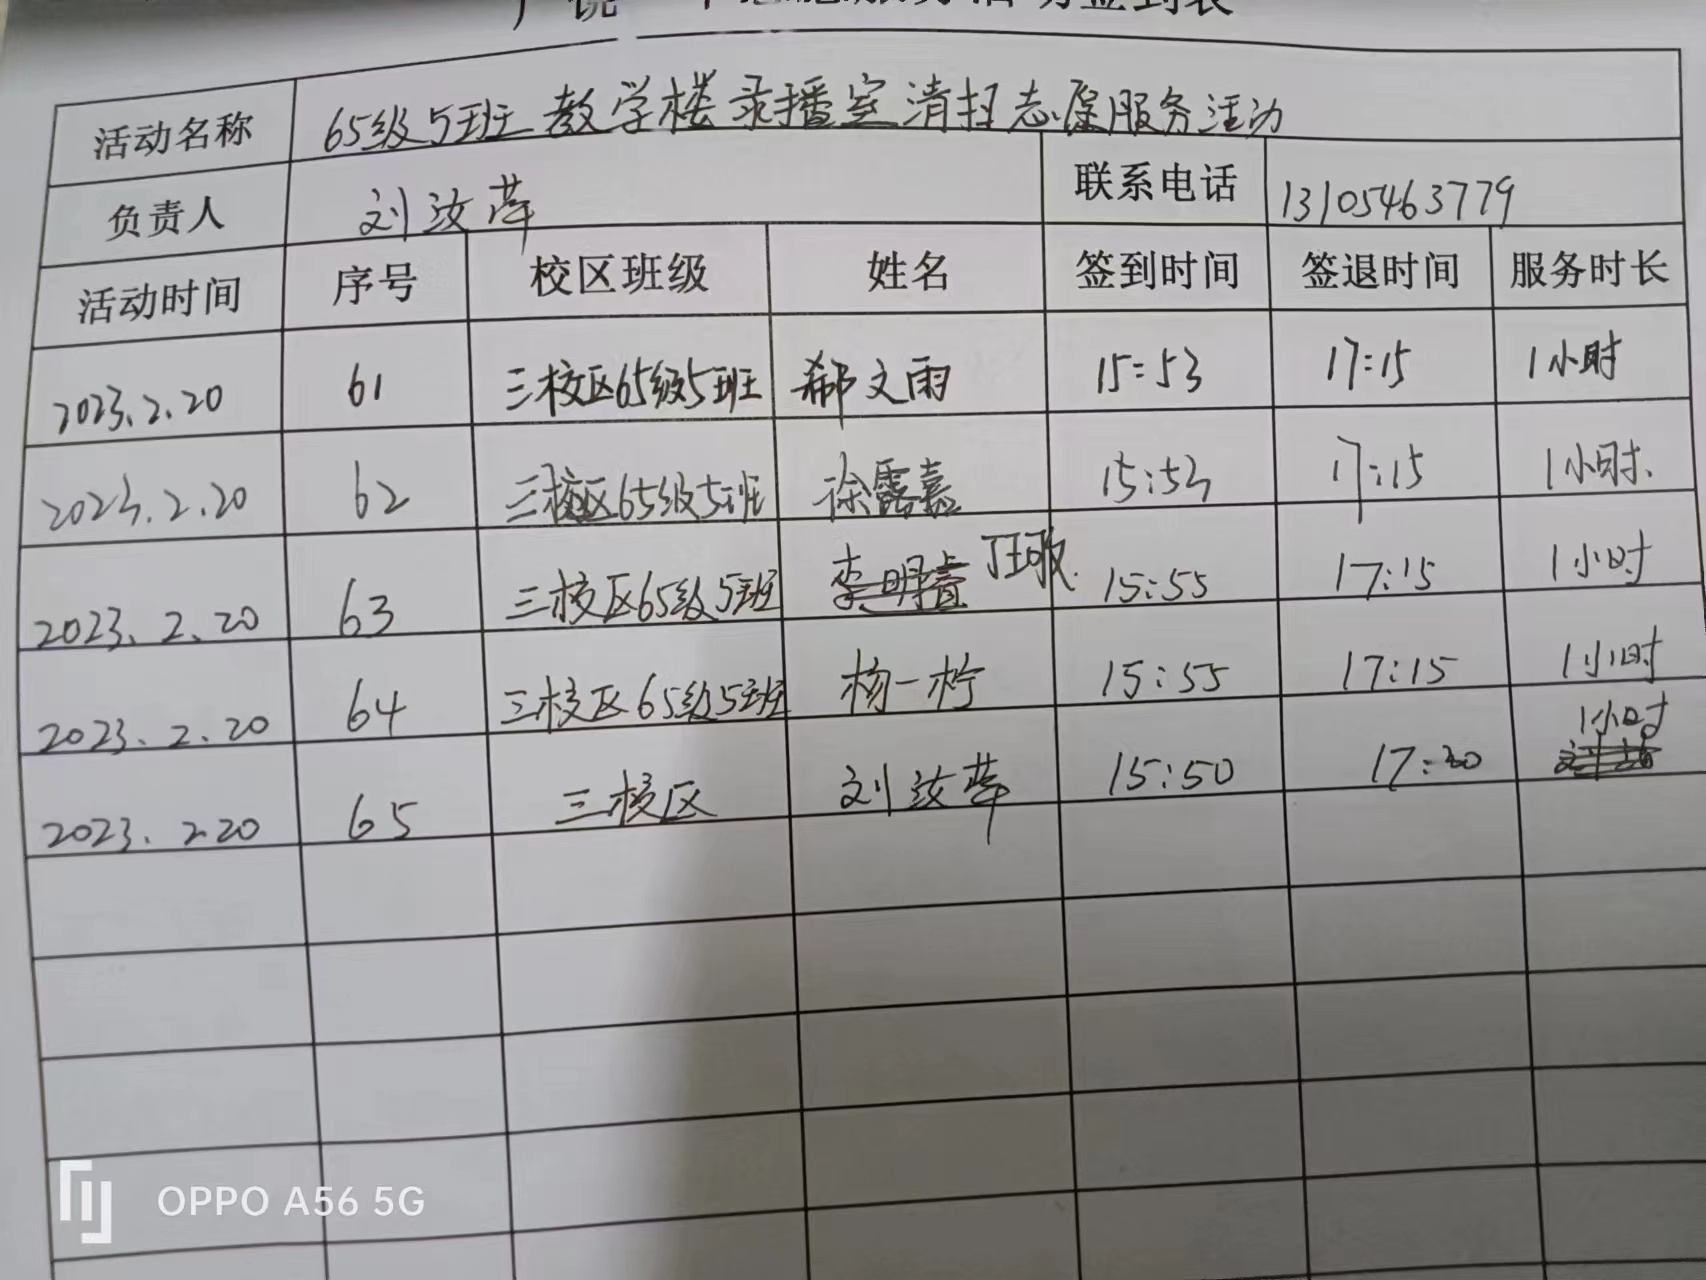 活动名称 65级5班教学楼录播室清扫志愿服务活动
负责人 刘汝萍 联系电话 13105463779
活动时间 序号 校区班级 姓名 签到时间 签退时间 服务时长
2023.2.20 61 三校区65级5班 郗文雨 15:53 17:15 1小时
2023.2.20 62 三校区65级5班 徐露嘉 15:53 17:15 1小时.
2023.2.20 63 三校区65级5班 李明睿 15:55 17:15 1小时
2023.2.20 64 三校区65级5班 杨一柠 15:55 17:15 1小时
2023.2.20 65 三校区 刘汝萍 15:50 17:20 1小时
OPPO A56 5G